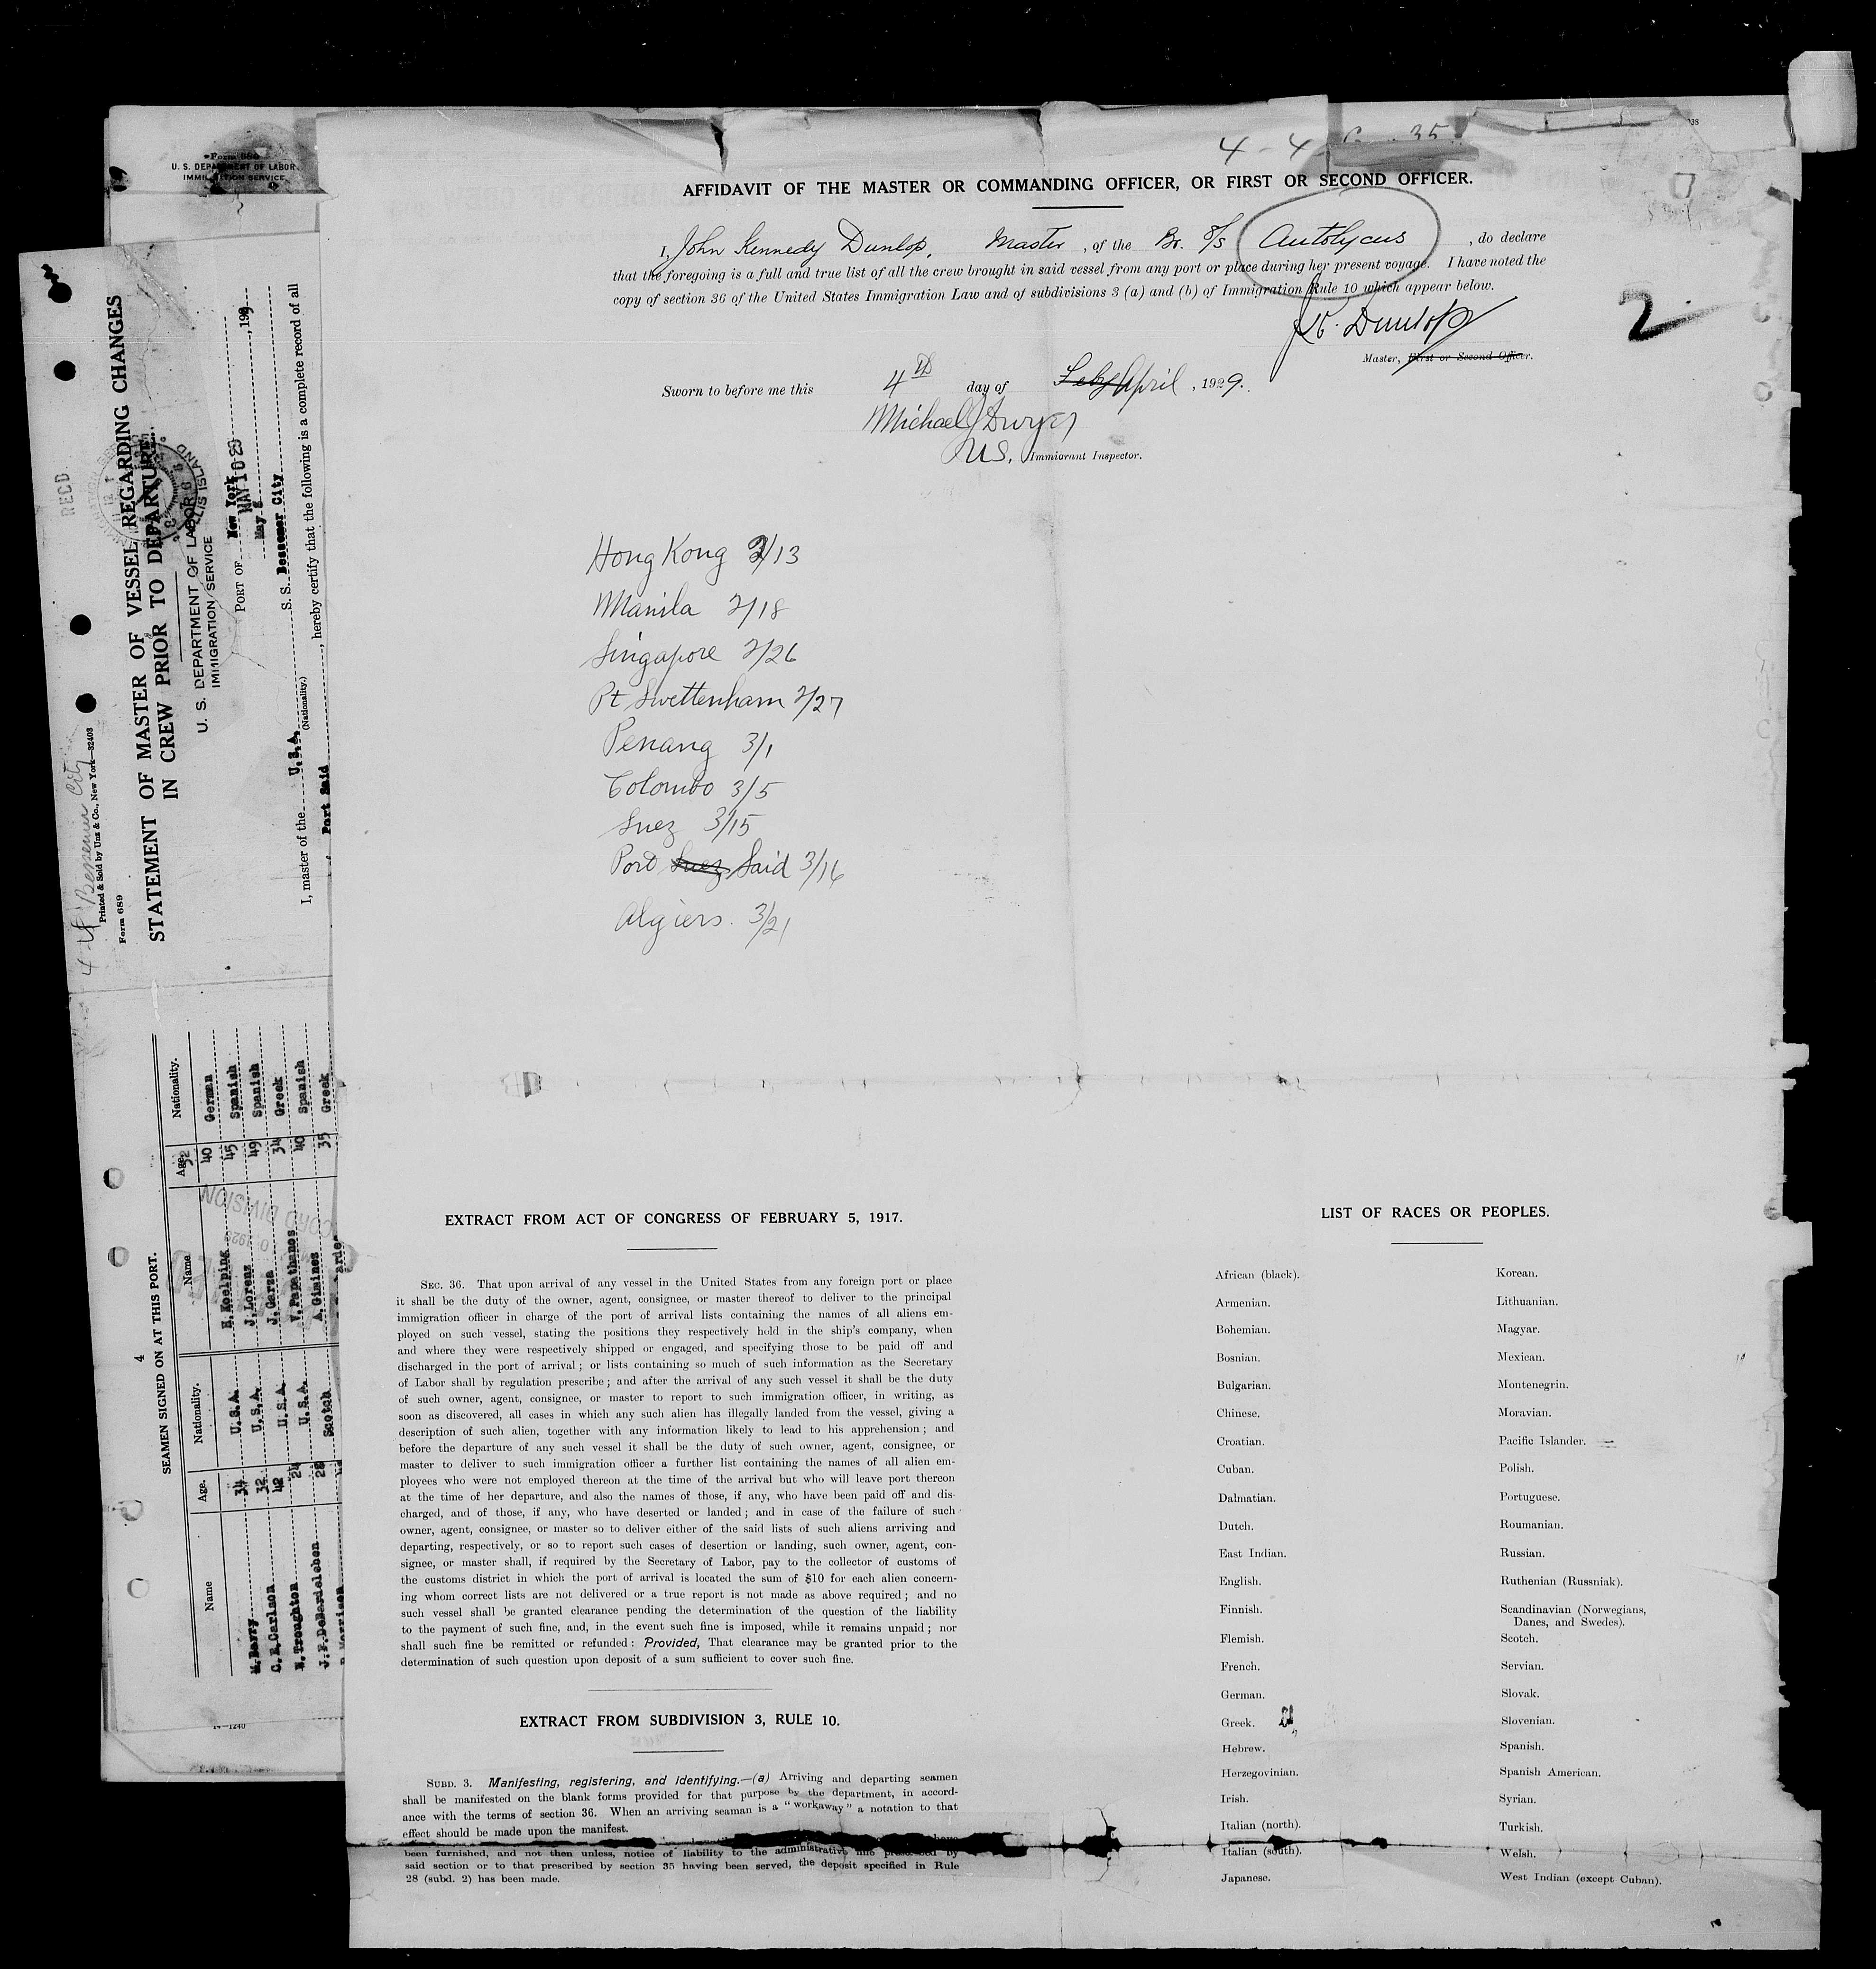 Form 689
U. S. DEPARTMENT OF LABOR
IMMIGRATION SERVICE
4 - 4 35
AFFIDAVIT OF THE MASTER OR COMMANDING OFFICER, OR FIRST OR SECOND OFFICER.
I, John Kennedy Dunlop, Master, of the Br. S/S Autolycus, do declare
that the foregoing is a full and true list of all the crew brought in said vessel from any port or place during her present voyage. I have noted the
copy of section 36 of the United States Immigration Law and of subdivisions 3 (a) and (b) of Immigration Rule 10 which appear below.
2
J K. Dunlop
Master, First or Second Officer.
Sworn to before me this 4th day of Feby April, 1929.
Michael J Dwyer
U.S. Immigrant Inspector.
Hong Kong 2/13
Manila 2/18
Singapore 2/26
Pt Swettenham 2/27
Penang 3/1
Colombo 3/5
Suez 3/15
Port Suez Said 3/16
Algiers. 3/21
EXTRACT FROM ACT OF CONGRESS OF FEBRUARY 5, 1917.
SEC. 36. That upon arrival of any vessel in the United States from any foreign port or place
it shall be the duty of the owner, agent, consignee, or master thereof to deliver to the principal
immigration officer in charge of the port of arrival lists containing the names of all aliens em-
ployed on such vessel, stating the positions they respectively hold in the ship's company, when
and where they were respectively shipped or engaged, and specifying those to be paid off and
discharged in the port of arrival; or lists containing so much of such information as the Secretary
of Labor shall by regulation prescribe; and after the arrival of any such vessel it shall be the duty
of such owner, agent, consignee, or master to report to such immigration officer, in writing, as
soon as discovered, all cases in which any such alien has illegally landed from the vessel, giving a
description of such alien, together with any information likely to lead to his apprehension; and
before the departure of any such vessel it shall be the duty of such owner, agent, consignee, or
master to deliver to such immigration officer a further list containing the names of all alien em-
ployees who were not employed thereon at the time of the arrival but who will leave port thereon
at the time of her departure, and also the names of those, if any, who have been paid off and dis-
charged, and of those, if any, who have deserted or landed; and in case of the failure of such
owner, agent, consignee, or master so to deliver either of the said lists of such aliens arriving and
departing, respectively, or so to report such cases of desertion or landing, such owner, agent, con-
signee, or master shall, if required by the Secretary of Labor, pay to the collector of customs of
the customs district in which the port of arrival is located the sum of $10 for each alien concern-
ing whom correct lists are not delivered or a true report is not made as above required; and no
such vessel shall be granted clearance pending the determination of the question of the liability
to the payment of such fine, and, in the event such fine is imposed, while it remains unpaid; nor
shall such fine be remitted or refunded: Provided, That clearance may be granted prior to the
determination of such question upon deposit of a sum sufficient to cover such fine.
EXTRACT FROM SUBDIVISION 3, RULE 10.
SUBD. 3. Manifesting, registering, and identifying.—(a) Arriving and departing seamen
shall be manifested on the blank forms provided for that purpose by the department, in accord-
ance with the terms of section 36. When an arriving seaman is a "workaway" a notation to that
effect should be made upon the manifest.
have
been furnished, and not then unless, notice of liability to the administrative fine prescribed by
said section or to that prescribed by section 35 having been served, the deposit specified in Rule
28 (subd. 2) has been made.
LIST OF RACES OR PEOPLES.
African (black).
Armenian.
Bohemian.
Bosnian.
Bulgarian.
Chinese.
Croatian.
Cuban.
Dalmatian.
Dutch.
East Indian.
English.
Finnish.
Flemish.
French.
German.
Greek.
Hebrew.
Herzegovinian.
Irish.
Italian (north).
Italian (south).
Japanese.
Korean.
Lithuanian.
Magyar.
Mexican.
Montenegrin.
Moravian.
Pacific Islander.
Polish.
Portuguese.
Roumanian.
Russian.
Ruthenian (Russniak).
Scandinavian (Norwegians,
Danes, and Swedes).
Scotch.
Servian.
Slovak.
Slovenian.
Spanish.
Spanish American.
Syrian.
Turkish.
Welsh.
West Indian (except Cuban).
RECD
4-4 Bessemer City
Printed & Sold by Unz & Co., New York—32403
Form 689
STATEMENT OF MASTER OF VESSEL REGARDING CHANGES
IN CREW PRIOR TO DEPARTURE
U. S. DEPARTMENT OF LABOR
IMMIGRATION SERVICE
ELLIS ISLAND
PORT OF New York
MAY 10 29
May 8, 1929
S. S. Bessemer City
I, master of the U.S.A. (Nationality.)
, hereby certify that the following is a complete record of all
Port Said
4
SEAMEN SIGNED ON AT THIS PORT.
Name Age. Nationality. Name Age. Nationality.
32
40 German
M. Berry 34 U.S.A. H. Koelping 45 Spanish
C. E. Carlson 32 U.S.A. J. Lorenz 49 Spanish
N. Troughton 42 U.S.A. J. Garza 34 Greek
J. F. DeBardeleben 24 U.S.A. V. Papathanos 40 Spanish
28 Scotch A. Gimines 35 Greek
14—1240